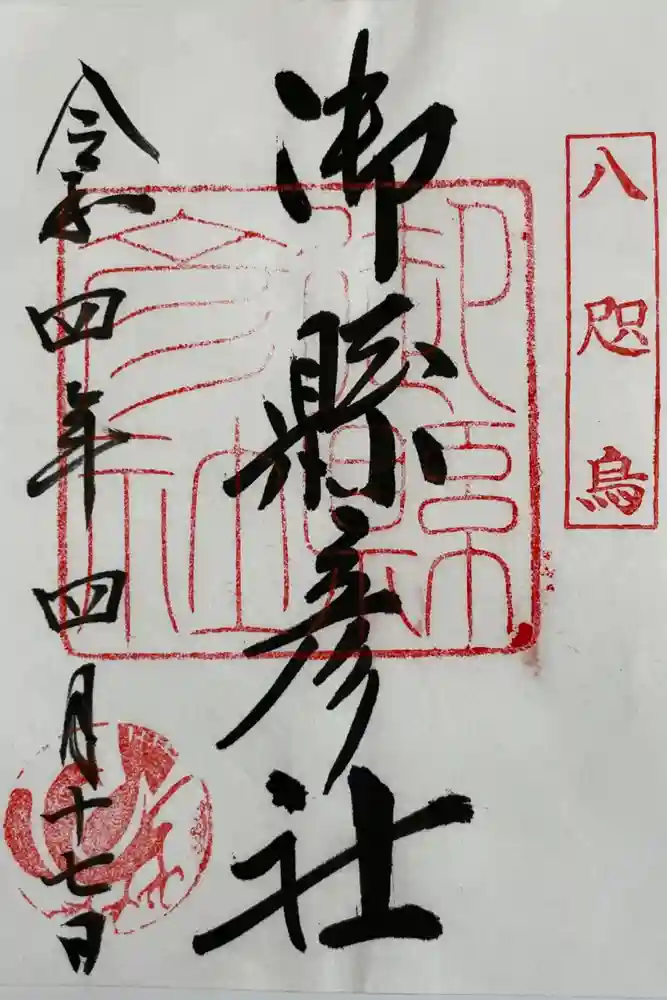 八咫烏
御縣彦社
令和四年四月十七日